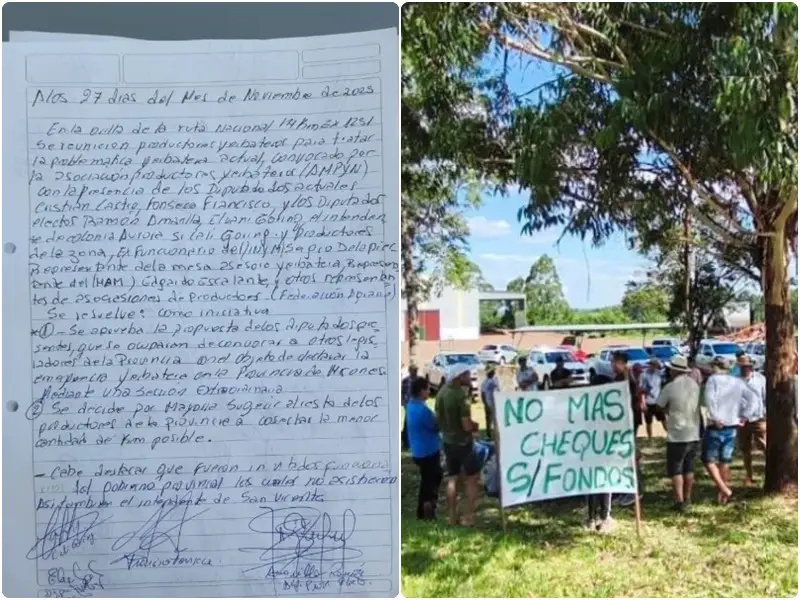 A los 27 dias del Mes de Noviembre de 2025
En la orilla de la ruta Nacional 14 Km 1251
Se reunieron productores yerbateros para tratar
la problematica yerbatera actual, convocado por
la asociación productores yerbateros (AMPYN)
con la presencia de los Diputados actuales
Cristian Castro, Fonseca Francisco, y los Diputados
electos Ramon Amarilla, Eluani Goring el intenden
te de colonia Aurora Goring y productores
de la zona, El Funcionario del
Representante de la mesa asesora yerbatera, Represen
tante del (HAM) Edgardo Escalante, y otros represetan
tes de asociasiones de productores (Federación Agraria)
Se resuelve: como iniciativa
① - Se aprueba la propuesta de los diputados pre
sentes, que se ocuparan de convocar a otros legis
ladores de la Provincia con el objeto de declarar la
emergencia yerbatera en la Provincia de Misiones
Mediante una Seccion Extraordinaria
② Se decide por Mayoria Sugerir al resto de los
productores de la provincia a cosechar la menor
cantidad de Kum posible.
- Cabe destacar que fueron invitados funcionarios
del gobierno provincial los cuales no existieron
Asi tambien el intendente de San Vicente
NO MAS
CHEQUES
S/FONDOS